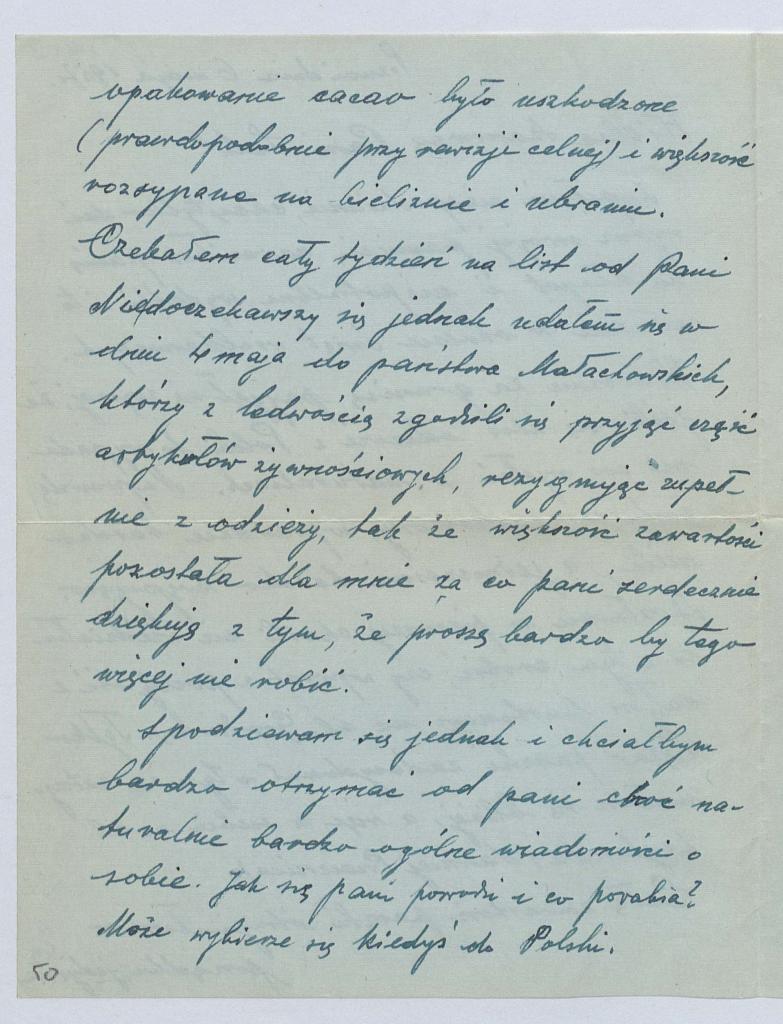 opakowanie cacao było uszkodzone
(prawdopodobnie przy rewizji celnej) i większość
rozsypana na bieliźnie i ubraniu.
Czekałem cały tydzień na list od Pani
Niedoczekawszy się jednak udałem się w
dniu 4 maja do państwa Małachowskich,
którzy z ledwością zgodzili się przyjąć część
artykułów żywnościowych, rezygnując zupeł-
nie z odzieży, tak że większość zawartości
pozostała dla mnie za co pani serdecznie
dziękuję z tym, że proszę bardzo by tego
więcej nie robić.
Spodziewam się jednak i chciałbym
bardzo otrzymać od pani choć na-
turalnie bardzo ogólne wiadomości o
sobie. Jak się pani powodzi i co porabia?
Może wybierze się kiedyś do Polski.
50